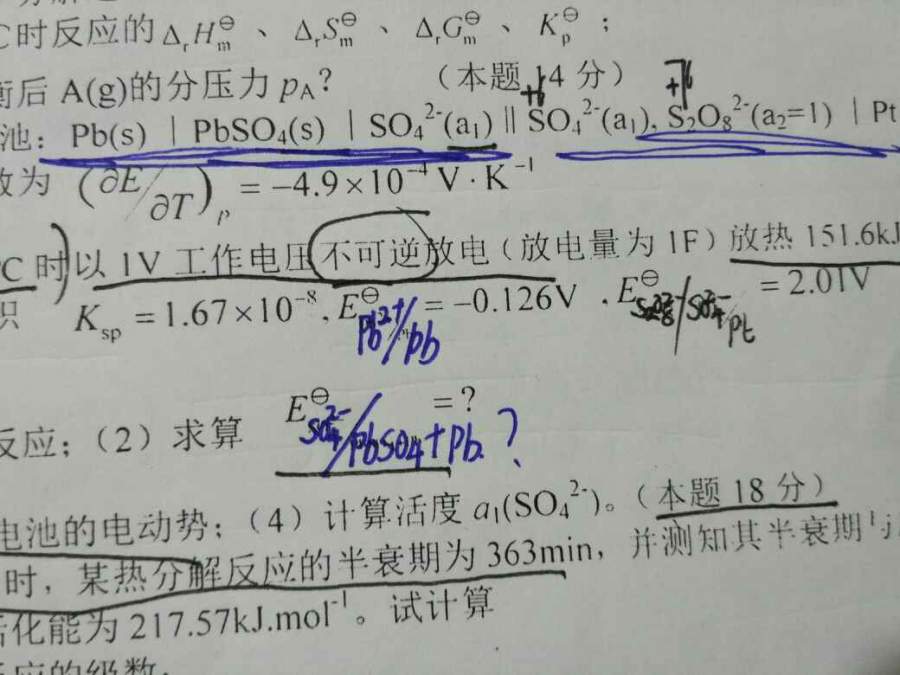 C时反应的 ΔrHm⊖ 、 ΔrSm⊖ 、 ΔrGm⊖ 、 Kp⊖ ；
衡后 A(g)的分压力 pA？ （本题 14 分）
池：Pb(s) | PbSO4(s) | SO4²⁻(a1) ‖ SO4²⁻(a1), S2O8²⁻(a2=1) | Pt
数为 (∂E/∂T)p = −4.9×10⁻⁴ V·K⁻¹
℃ 时 以 1V 工作电压不可逆放电（放电量为 1F）放热 151.6kJ
积 Ksp = 1.67×10⁻⁸, E⊖ Pb²⁺/Pb = −0.126V , E⊖ S2O8²⁻/SO4²⁻ Pt = 2.01V
反应；（2）求算 E⊖ SO4²⁻/PbSO4+Pb = ? ?
电池的电动势；（4）计算活度 a1(SO4²⁻)。（本题 18 分）
时，某热分解反应的半衰期为 363min，并测知其半衰期与
活化能为 217.57kJ.mol⁻¹ 。试计算
反应的级数；